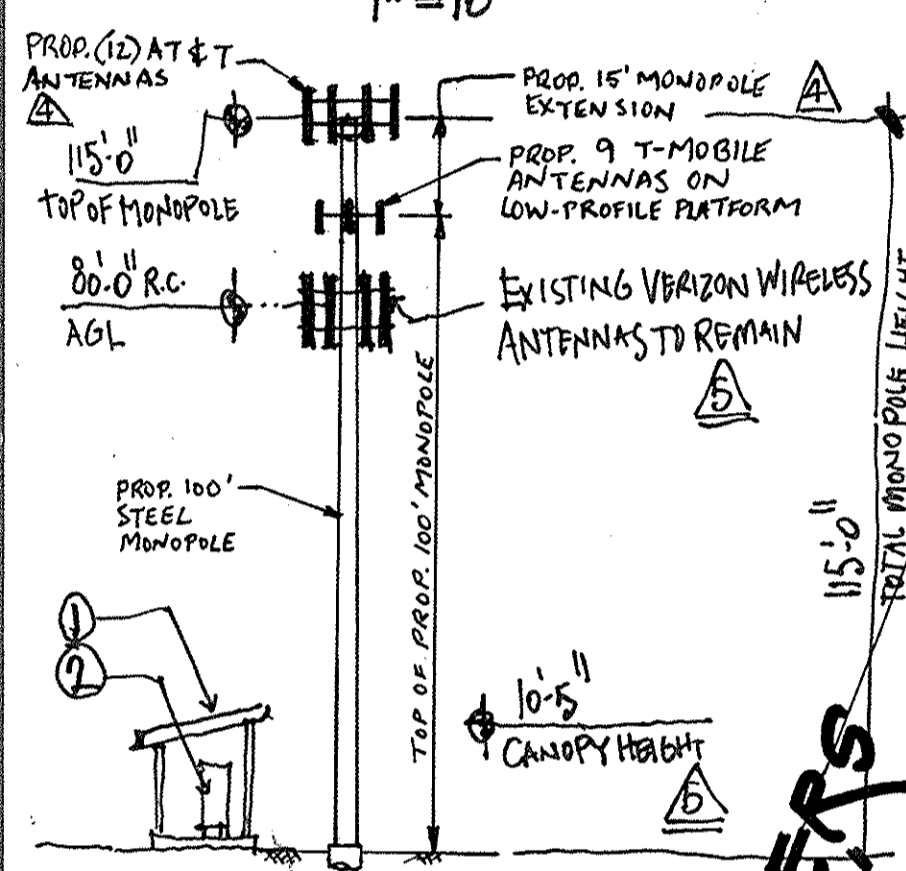 1" = 10'
PROP. (12) AT & T
ANTENNAS
4
115'-0"
TOP OF MONOPOLE
80'-0" R.C.
AGL
PROP. 15' MONOPOLE
EXTENSION
4
PROP. 9 T-MOBILE
ANTENNAS ON
LOW-PROFILE PLATFORM
EXISTING VERIZON WIRELESS
ANTENNAS TO REMAIN
5
TOP OF PROP. 100' MONOPOLE
PROP. 100'
STEEL
MONOPOLE
1
2
10'-5"
CANOPY HEIGHT
5
115'-0"
TOTAL MONOPOLE HEIGHT